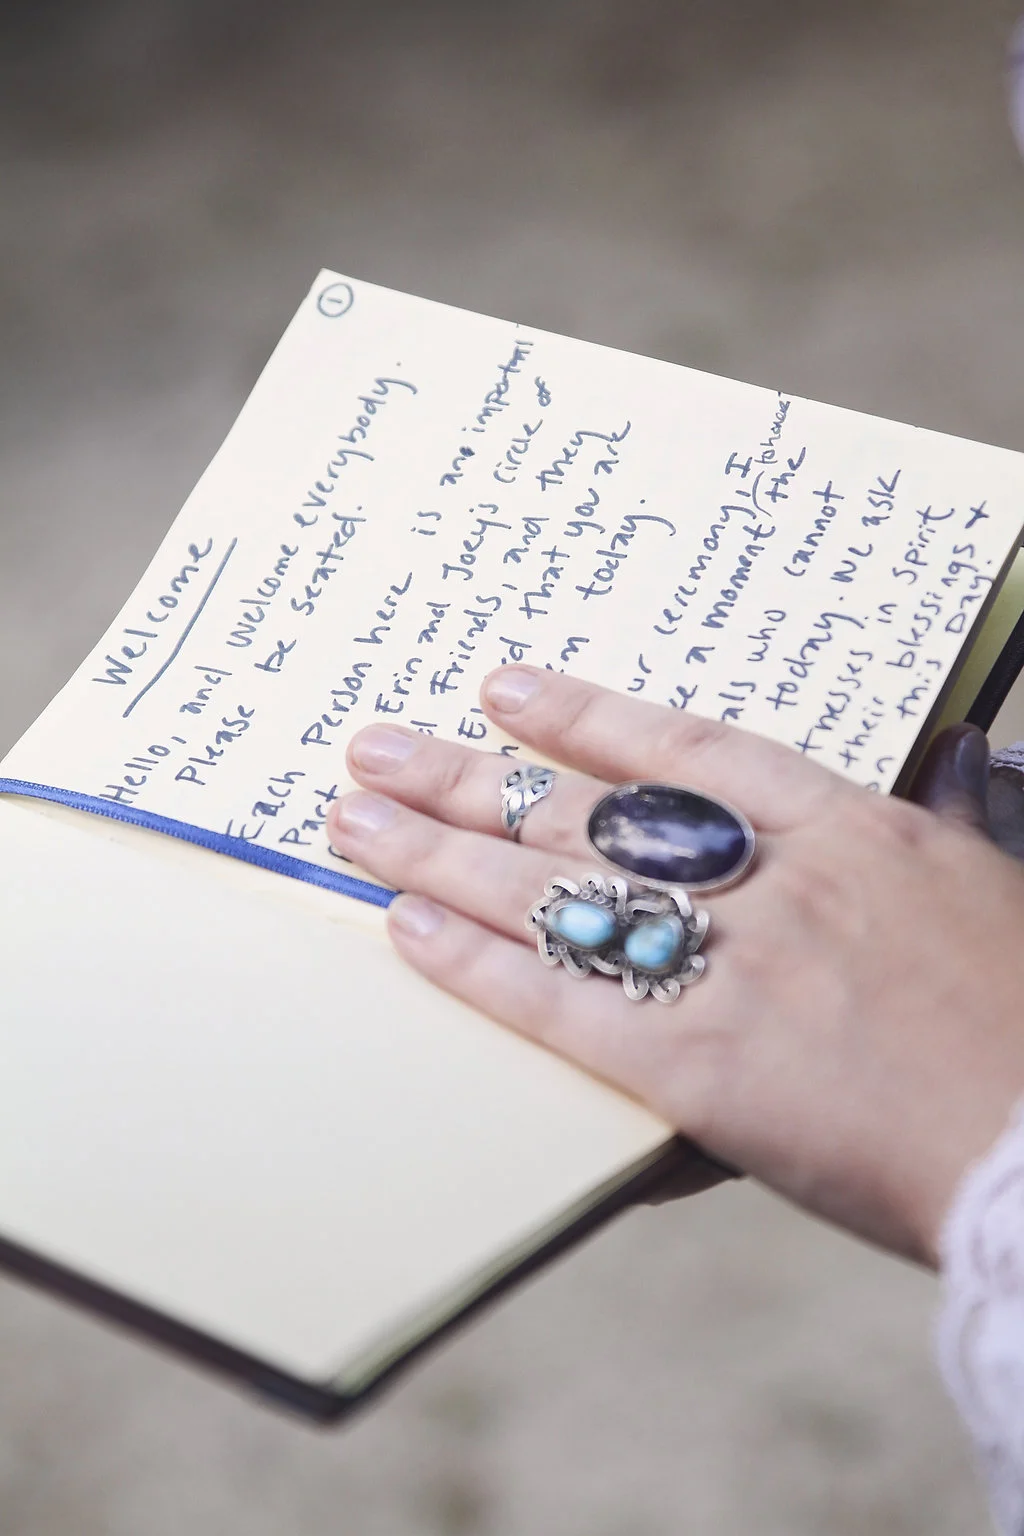 ①
Welcome
Hello, and Welcome everybody.
Please be seated.
Each Person here is an important
Part Erin and Joey's circle of
Friends, and they
that you are
today.
ceremony, I
a moment to honor the
who cannot
today. We ask
their in Spirit
this blessings +
Day.